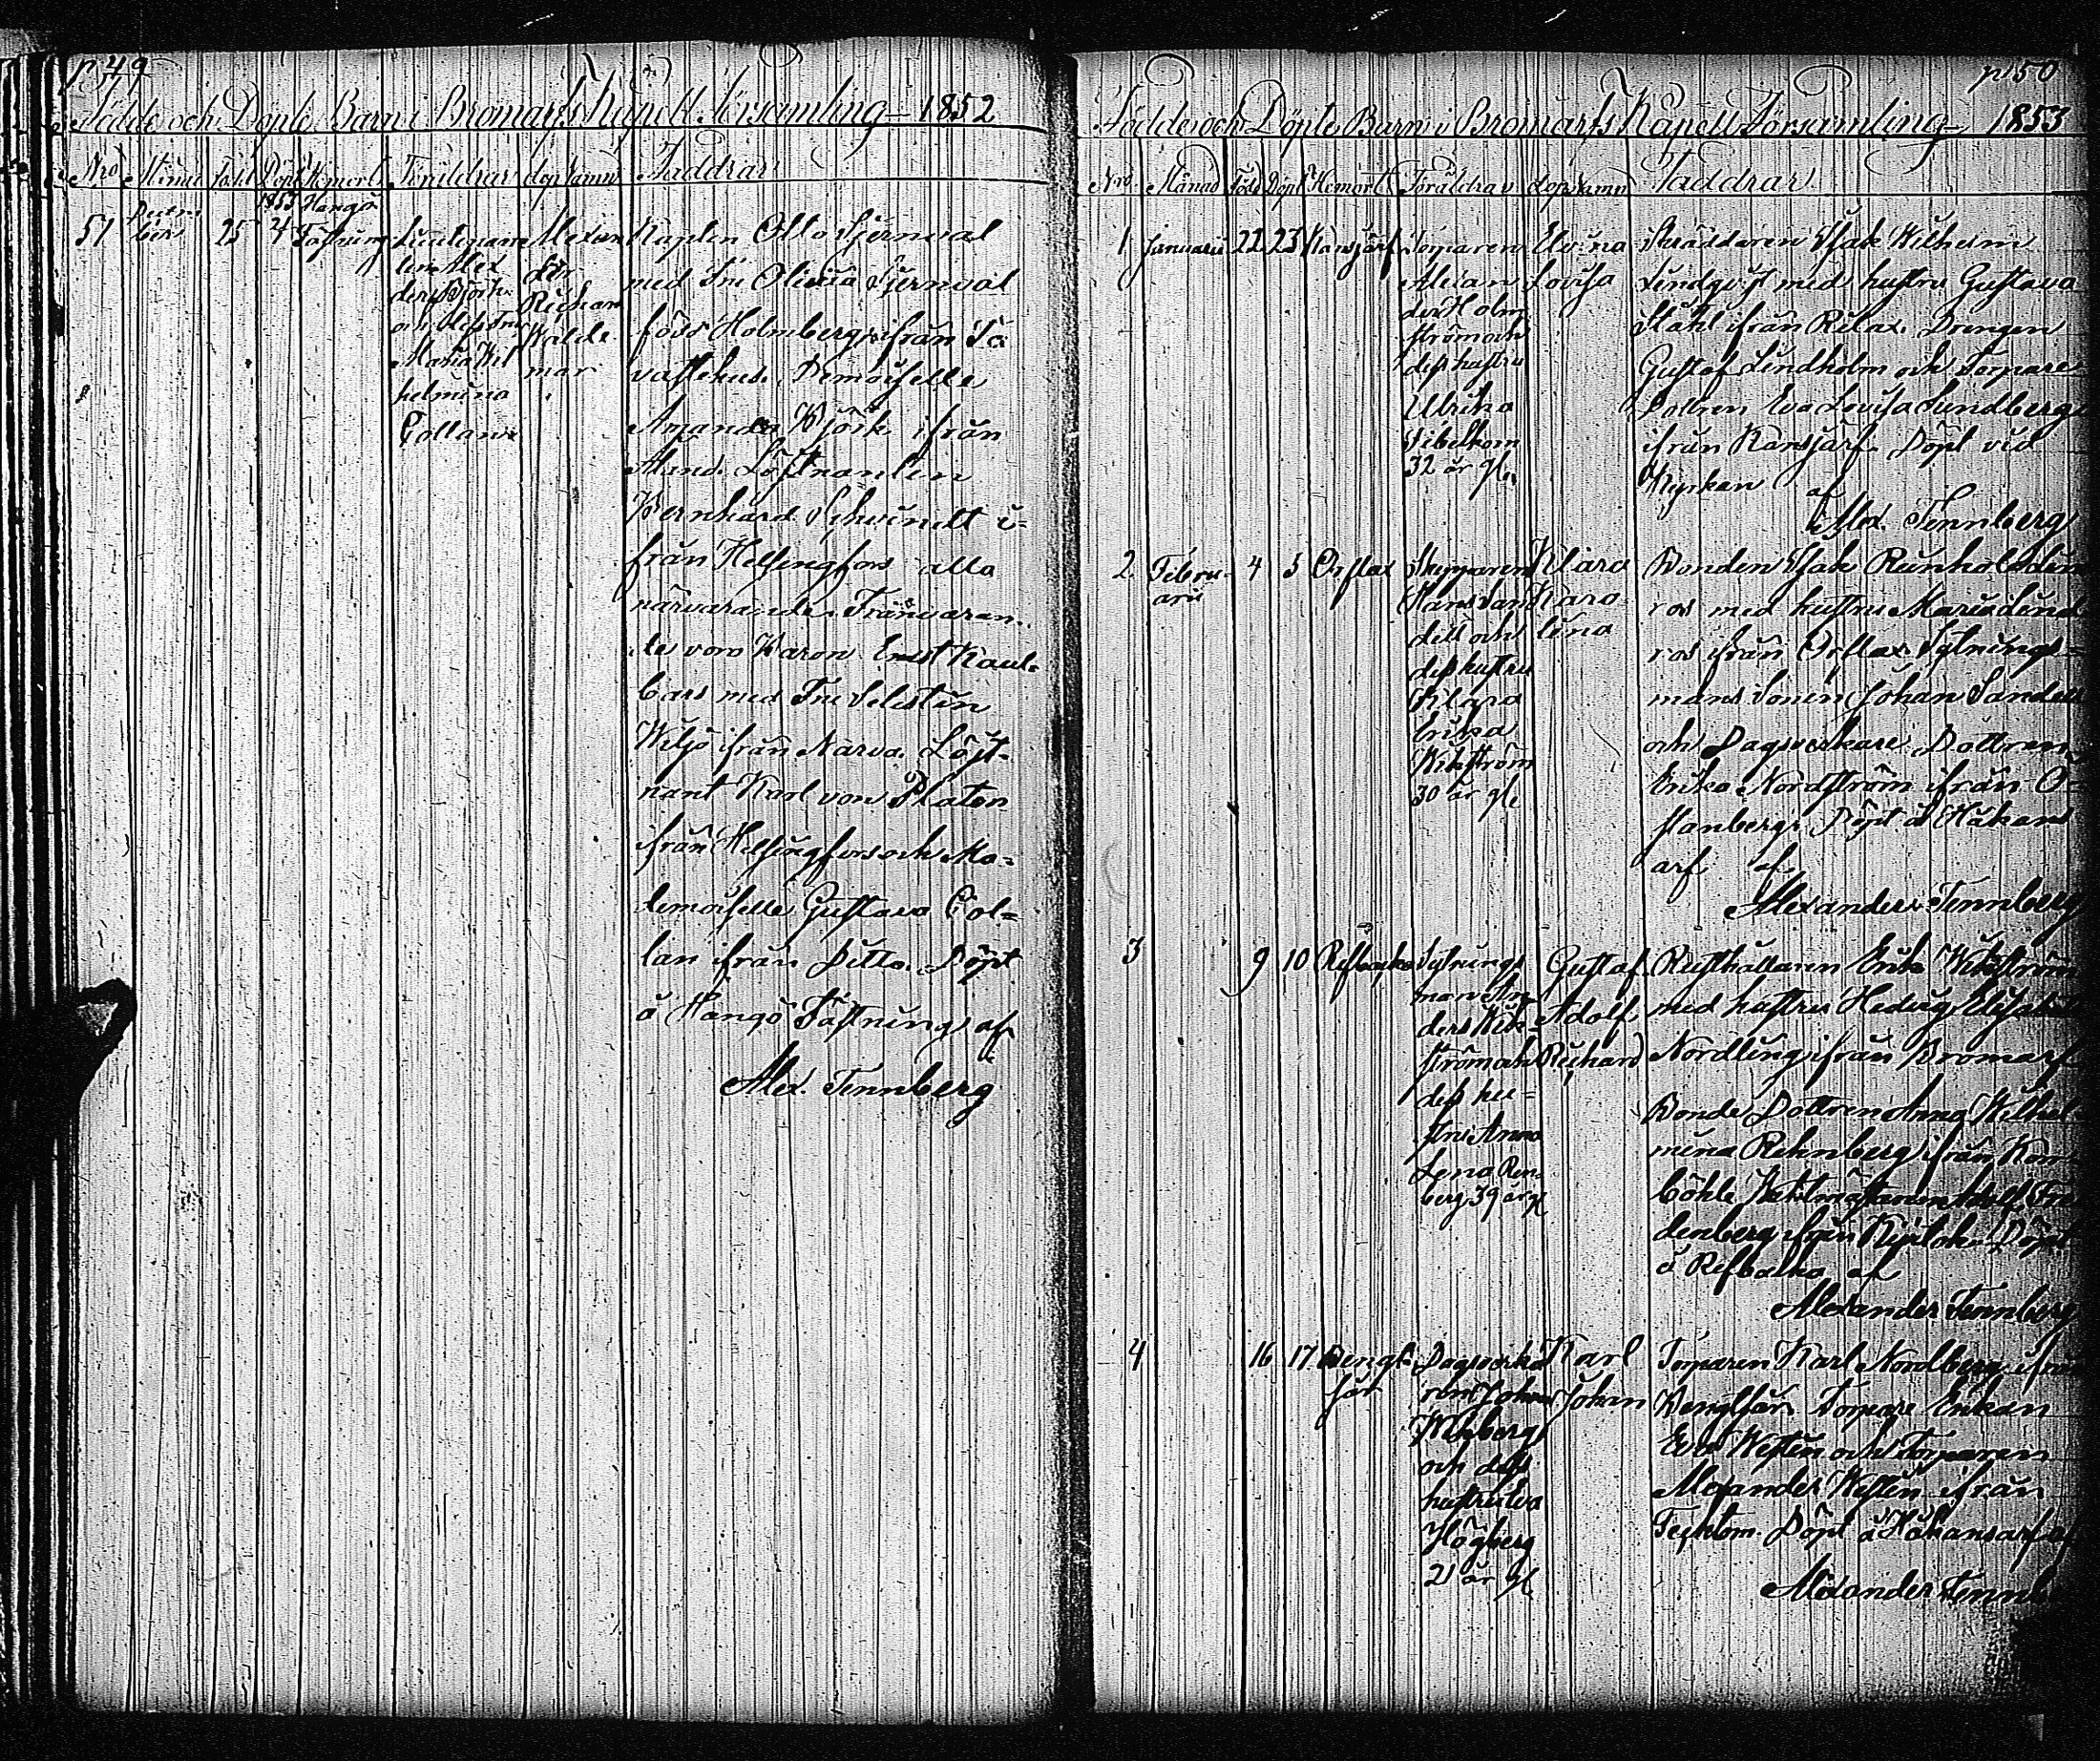 p 49
Födde och Döpte Barn i Bromarfs Kapell Församling 1852
Nro Månad Född Döpt Hemort Föräldrar dopnamn Faddrar
51 Decem
ber 25 1853 4 Hangö
Fästning
Lieutenan
ten Alex
ders Björk
och dess fru
Maria Wil
helmina
Collan
Alexan
der
Richard
Walde
mar
Kapten Otto Stjernval
med Fru Olivia Stjernval
född Holmberg ifrån Ta
vastehus. Demoiselle
Amanda Björk ifrån
Åland. Löjtnanten
Bernhard Schwindt i-
från Helsingfors alla
närvarande. Frånvaran-
de voro Baron Ernst Kaul-
bars med Fru
ifrån Narva. Löjt-
nant Karl von Platen
ifrån Helsingfors och Ma-
demoiselle Gustava Col-
lan ifrån Ditto. Döpt
å Hangö Fästning af
Alex. Tennberg
p 50
Födde och Döpte Barn i Bromarfs Kapell Församling 1853
Nro Månad Född Döpt Hemort Föräldrar dopnamn Faddrar
1 Januarii 22 23 Kansjärf
Torparen
Alexan
der Holm
ström och
dess hustru
Ulrika
32 år gl.
Elvina
Lovisa
Skräddaren Isak Wilhelm
Lindqvist med hustru Gustava
Ståhl ifrån Rilax. Drengen
Gustaf Lindholm och Torpare
Dottren Eva Lovisa Lundberg
ifrån Kansjärf. Döpt vid
Kyrkan af
Alex. Tennberg
2. Febru-
arii 4 5 Orslax
Skepparen
Hans San
dell och
dess hustru
Klara
Erika
Wikström
30 år gl.
Klara
Karo
lina
Bonden Isak Reinhold Lind
ros med hustru Maria Lind
ros ifrån Orslax. Sytnings-
mans Sonen Johan Sandell
och Dagsverkare Dottren
Erika Nordström ifrån Ö-
stanberg. Döpt å Håkans
arf af
Alexander Tennberg
3 9 10 Refbacka
Sytnings
man An
ders Wik
ström och
dess hu-
stru Anna
Lena Ren
berg, 39 år gl
Gustaf
Adolf
Richard
Rusthållaren Erik Wikström
med hustru Hedvig Elisabet
Nordling ifrån Bromarf
Bonde Dottren Anna Wilhel
mina Rehnberg ifrån Kom
böhle
denberg ifrån Döpt
å Refbacka af
Alexander Tennberg
4 16 17 Bengt-
sår
Dagsverka
ren Johan
Wikberg
och dess
hustru Eva
Högberg
21 år gl
Karl
Johan
Torparen Karl Nordberg ifrån
Bengtsår. Torpare Enkan
Eva Westén och Torparen
Alexander Westén ifrån
Döpt å Håkansarf af
Alexander Tennb